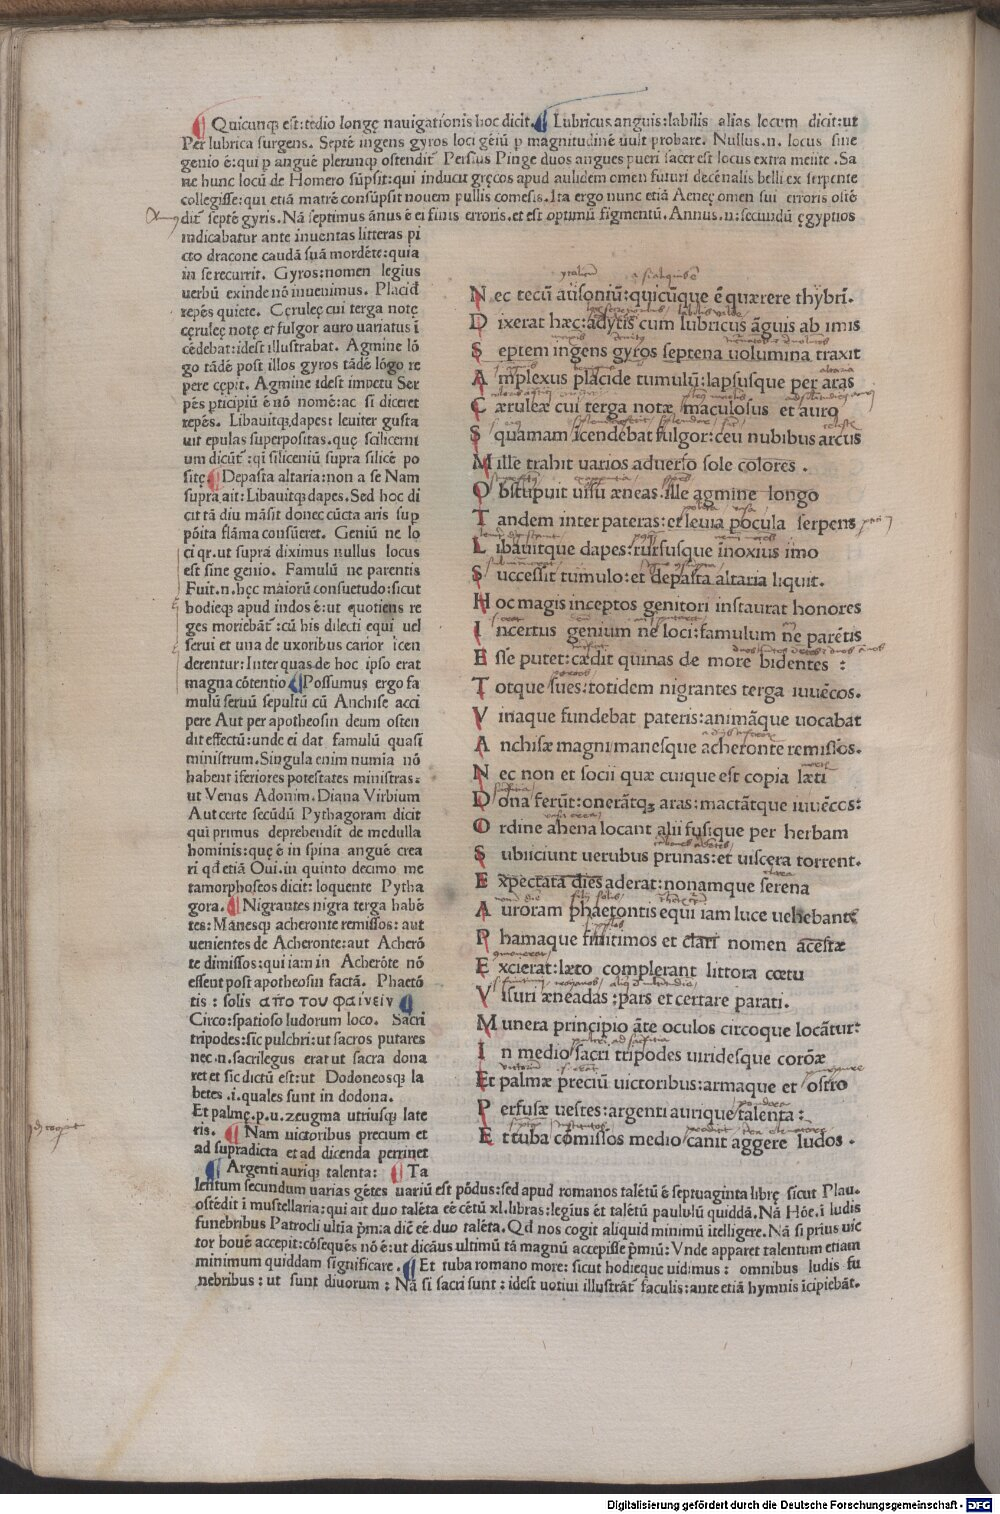 Quicunq; est: tedio longę nauigationis hoc dicit. Lubricus anguis: labilis alias locum dicit: ut
Per lubrica surgens. Septē ingens gyros loci geiū p magnitudinē uult probare. Nullus .n. locus sine
genio ē: qui p anguē plerunq; ostendit Persius Pinge duos angues pueri sacer est locus extra meiite. Sa
ne hunc locū de Homero sūpsit: qui inducit gręcos apud aulidem omen futuri decēnalis belli ex serpente
collegisse: qui etiā matrē consūpsit nouem pullis comesis. Ita ergo nunc etiā Aeneę omen sui erroris ostē
dit septē gyris. Nā septimus ānus ē ei finis erroris. et est optimū figmentū. Annus .n. secundū ęgyptios
indicabatur ante inuentas litteras pi
cto dracone caudā suā mordēte: quia
in se recurrit. Gyros: nomen legius
uerbū exinde nō inuenimus. Placid
repēs quiete. Cęruleę cui terga notę
cęruleę notę et fulgor auro uariatus ī
cēdebat: idest illustrabat. Agmine lō
go tādē post illos gyros tādē lōgo re
pere cępit. Agmine idest impetu Ser
pēs pticipiū ē nō nomē: ac si diceret
repēs. Libauitq; dapes: leuiter gusta
uit epulas superpositas. quę scilicerni
um dicūt: qi siliceniū supra silicē po
sitę. Depasta altaria: non a se Nam
supra ait: Libauitq; dapes. Sed hoc di
cit tā diu māsit donec cūcta aris sup
pōita flāma consūeret. Geniū ne lo
ci qr. ut supra diximus nullus locus
est sine genio. Famulū ne parentis
Fuit .n. hęc maiorū consuetudo: sicut
hodieq; apud indos ē: ut quotiens re
ges moriebāt: cū his dilecti equi uel
serui et una de uxoribus carior icen
derentur: Inter quas de hoc ipso erat
magna cōtentio Possumus ergo fa
mulū seruū sepultū cū Anchise acci
pere Aut per apotheosin deum osten
dit effectū: unde ei dat famulū quasi
ministrum. Singula enim numia nō
habent īferiores potestates ministras:
ut Venus Adonim. Diana Virbium
Aut certe secūdū Pythagoram dicit
qui primus deprehendit de medulla
hominis: quę ē in spina anguē crea
ri qd etiā Oui. in quinto decimo me
tamorphoseos dicit: loquente Pytha
gora. Nigrantes nigra terga habē
tes: Manesq; acheronte remissos: aut
uenientes de Acheronte: aut Acherō
te dimissos: qui iam in Acherōte nō
essent post apotheosin factā. Phaetō
tis: solis απο του φαίνειν
Circo: spatioso ludorum loco. Sacri
tripodes: sic pulchri: ut sacros putares
nec .n. sacrilegus erat ut sacra dona
ret et sic dictū est: ut Dodoneosq; la
betes .i. quales sunt in dodona.
Et palmę .p. u. zeugma utriusq; late
ris. Nam uictoribus precium et
ad supradicta et ad dicenda pertinet
Argenti auriq; talenta: Ta
lentum secundum uarias gētes uariū est pōdus: sed apud romanos talētū ē septuaginta librę sicut Plau.
ostēdit i mustellaria: qui ait duo talēta eē cētū xl. libras: legius ēt talētū paululū quiddā. Nā Hōe. i ludis
funebribus Patrocli ultia p̄m:a dic̄ eē duo talēta. Qd nos cogit aliquid minimū itelligere. Nā si prius uic
tor bouē accepit: cōsequēs nō ē: ut dicāus ultimū tā magnū accepisse p̄miū: Vnde apparet talentum etiam
minimum quiddam significare. Et tuba romano more: sicut hodieque uidimus: omnibus ludis fu
nebribus: ut sunt diuorum: Nā si sacri sunt: idest uotiui illustrāt faculis: ante etiā hymnis īcipiebāt.
N ec tecū ausoniū: quicūque ē quærere thybrī.
D ixerat hæc: adytis cum lubricus āguis ab imis
S eptem ingens gyros septena uolumina traxit
A mplexus placide tumulū: lapsusque per aras
C æruleæ cui terga notæ maculosus et auro
S quamam icendebat fulgor: ceu nubibus arcus
M ille trahit uarios aduerso sole colores.
O bstupuit uisu æneas. ille agmine longo
T andem inter pateras: et leuia pocula serpens
L ibauitque dapes: rursusque īnoxius imo
S uccessit tumulo: et depasta altaria liquit.
H oc magis inceptos genitori instaurat honores
I ncertus genium ne loci: famulum ne parētis
E sse putet: cædit quinas de more bidentes:
T otque sues: totidem nigrantes terga iuuēcos.
V inaque fundebat pateris: animāque uocabat
A nchisæ magni manesque acheronte remissos.
N ec non et socii quæ cuique est copia læti
D ona ferūt: onerātq; aras: mactātque iuuēcos:
O rdine ahena locant alii fusique per herbam
S ubiiciunt uerubus prunas: et uiscera torrent.
E xpectata dies aderat: nonamque serena
A uroram phaetontis equi iam luce uehebant
P hamaque finitimos et clari nomen acestæ
E xcierat: læto complerant littora cœtu
V isuri æneadas: pars et certare parati.
M unera principio āte oculos circoque locātur:
I n medio sacri tripodes uiridesque corōæ
Et palmæ preciū uictoribus: armaque et ostro
P erfusæ uestes: argenti aurique talenta:
E t tuba cōmissos medio canit aggere ludos.
Digitalisierung gefördert durch die Deutsche Forschungsgemeinschaft - DFG